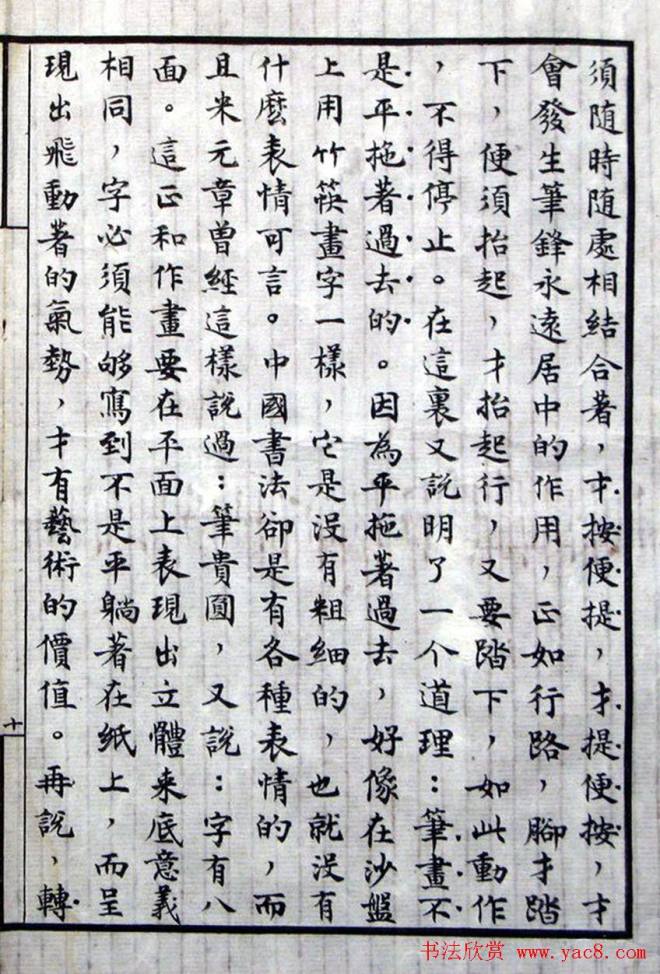 須随時随處相結合著，才按便提，才提便按，才
會發生筆鋒永遠居中的作用，正如行路，腳才踏
下，便須抬起，才抬起行，又要踏下，如此動作
，不得停止。在這裏又説明了一个道理：筆畫不
是平拖著過去的。因為平拖著過去，好像在沙盤
上用竹筷畫字一樣，它是没有粗细的，也就没有
什麼表情可言。中國書法卻是有各種表情的，而
且米元章曾經這樣説過：筆貴圓，又説：字有八
面。這正和作畫要在平面上表現出立體来底意義
相同，字必須能够寫到不是平躺著在紙上，而呈
現出飛動著的氣勢，才有藝術的價值。再説，轉
十
书法欣赏 www.yac8.com